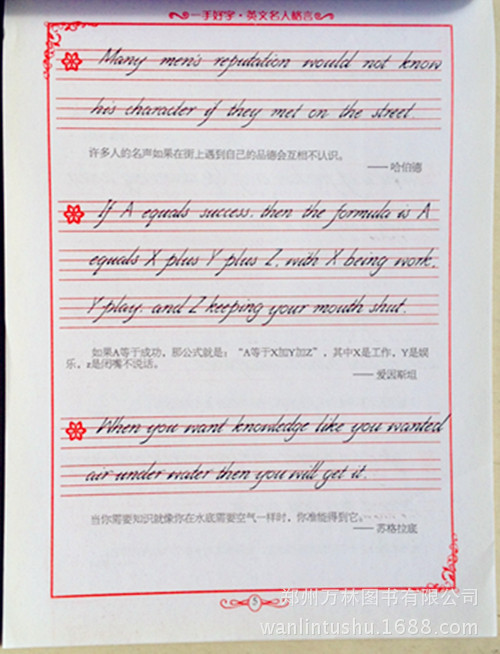 一手好字·英文名人格言
Many men's reputation would not know
his character if they met on the street.
许多人的名声如果在街上遇到自己的品德会互相不认识。
——哈伯德
If A equals success, then the formula is A
equals X plus Y plus Z, with X being work,
Y play, and Z keeping your mouth shut.
如果A等于成功,那公式就是:“A等于X加Y加Z”,其中X是工作,Y是娱
乐,z是闭嘴不说话。
——爱因斯坦
When you want knowledge like you wanted
air under water then you will get it.
当你需要知识就像你在水底需要空气一样时,你准能得到它。
——苏格拉底
5
郑州万林图书有限公司
wanlintushu.1688.com